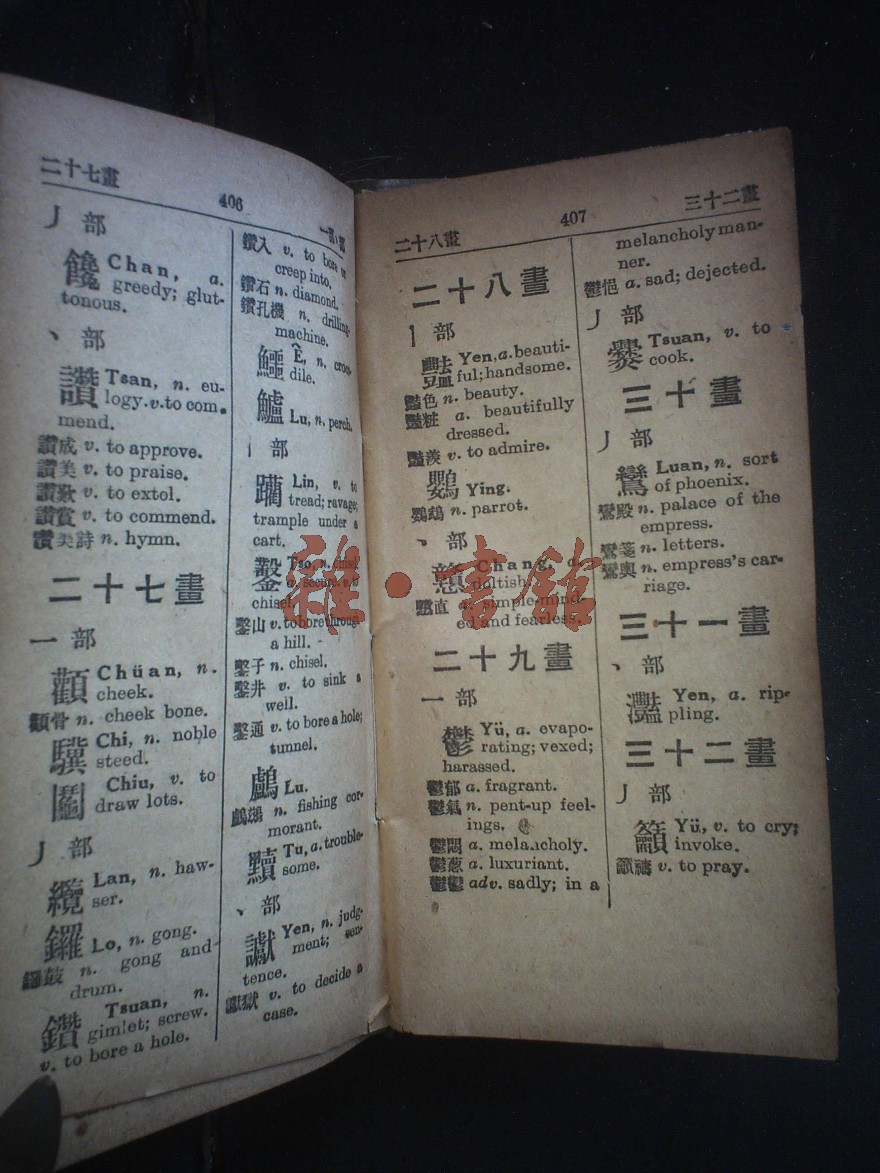 二十七畫
406
丿部
饞 Chan, a.
greedy; glut-
tonous.
丶部
讚 Tsan, n. eu-
logy. v. to com-
mend.
讚成 v. to approve.
讚美 v. to praise.
讚歎 v. to extol.
讚賞 v. to commend.
讚美詩 n. hymn.
二十七畫
一部
顴 Chüan, n.
cheek.
顴骨 n. cheek bone.
驥 Chi, n. noble
steed.
鬮 Chiu, v. to
draw lots.
丿部
纜 Lan, n. haw-
ser.
鑼 Lo, n. gong.
鑼鼓 n. gong and
drum.
鑽 Tsuan, n.
gimlet; screw.
v. to bore a hole.
鑽入 v. to bore or
creep into.
鑽石 n. diamond.
鑽孔機 n. drilling-
machine.
鱷 Ê, n. croco-
dile.
鱸 Lu, n. perch.
丨部
躪 Lin, v. to
tread; ravage;
trample under a
cart.
鑿 Tso, n. chisel
a. secure. v. to
chisel.
鑿山 v. to bore through
a hill.
鑿子 n. chisel.
鑿井 v. to sink a
well.
鑿通 v. to bore a hole;
tunnel.
鸕 Lu.
鸕鶿 n. fishing cor-
morant.
黷 Tu, a. trouble-
some.
丶部
讞 Yen, n. judg-
ment; sen-
tence.
讞獄 v. to decide a
case.
二十八畫
407
三十二畫
二十八畫
丨部
豔 Yen, a. beauti-
ful; handsome.
豔色 n. beauty.
豔粧 a. beautifully
dressed.
豔羨 v. to admire.
鸚 Ying.
鸚鵡 n. parrot.
丶部
戇 Chang, a.
doltish.
戇直 a. simple-mind-
ed and fearless.
二十九畫
一部
鬱 Yü, a. evapo-
rating; vexed;
harassed.
鬱郁 a. fragrant.
鬱氣 n. pent-up feel-
ings.
鬱悶 a. melancholy.
鬱蔥 a. luxuriant.
鬱鬱 adv. sadly; in a
melancholy man-
ner.
鬱悒 a. sad; dejected.
丿部
爨 Tsuan, v. to
cook.
三十畫
丿部
鸞 Luan, n. sort
of phoenix.
鸞殿 n. palace of the
empress.
鸞箋 n. letters.
鸞輿 n. empress's car-
riage.
三十一畫
丶部
灩 Yen, a. rip-
pling.
三十二畫
丿部
籲 Yü, v. to cry;
invoke.
籲禱 v. to pray.
雜·書館